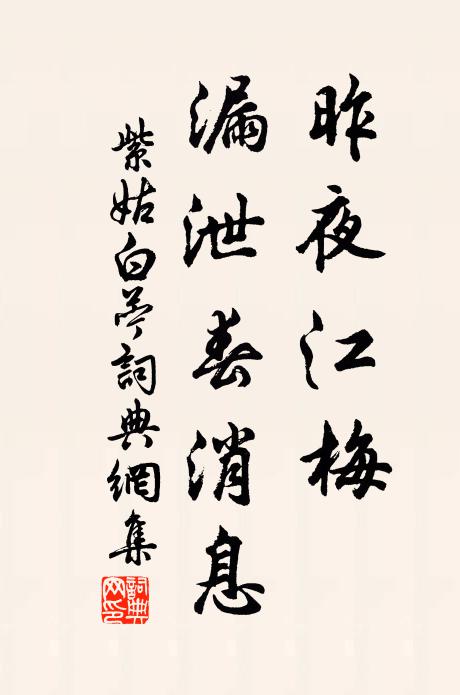 昨夜江梅
漏泄春消息
紫姑白苧詞典網集
詞典
网印